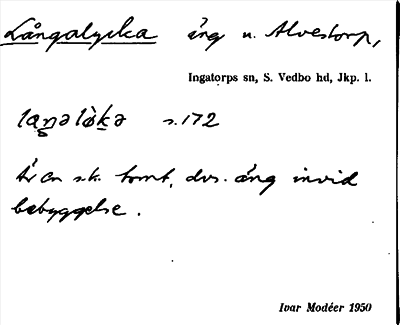 Långalycka äng u. Alvestorp,
Ingatorps sn, S. Vedbo hd, Jkp. l.
s. 172
Är en s.k. tomt, dvs. äng invid
bebyggelse.
Ivar Modéer 1950